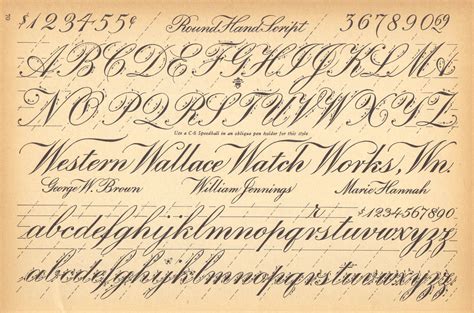 $123455¢ Round Hand Script 36789069
ABCDEFGHIJKLM
NOPQRSTUVWXYZ
Use a C-5 Speedball in an oblique pen holder for this style
Western Wallace Watch Works, Wn.
George W. Brown William Jennings Marie Hannah
r $1234567890
abcdefghijklmnopqrstuvwxyzz
abcdefghijklmnopqrstuvwxyzz